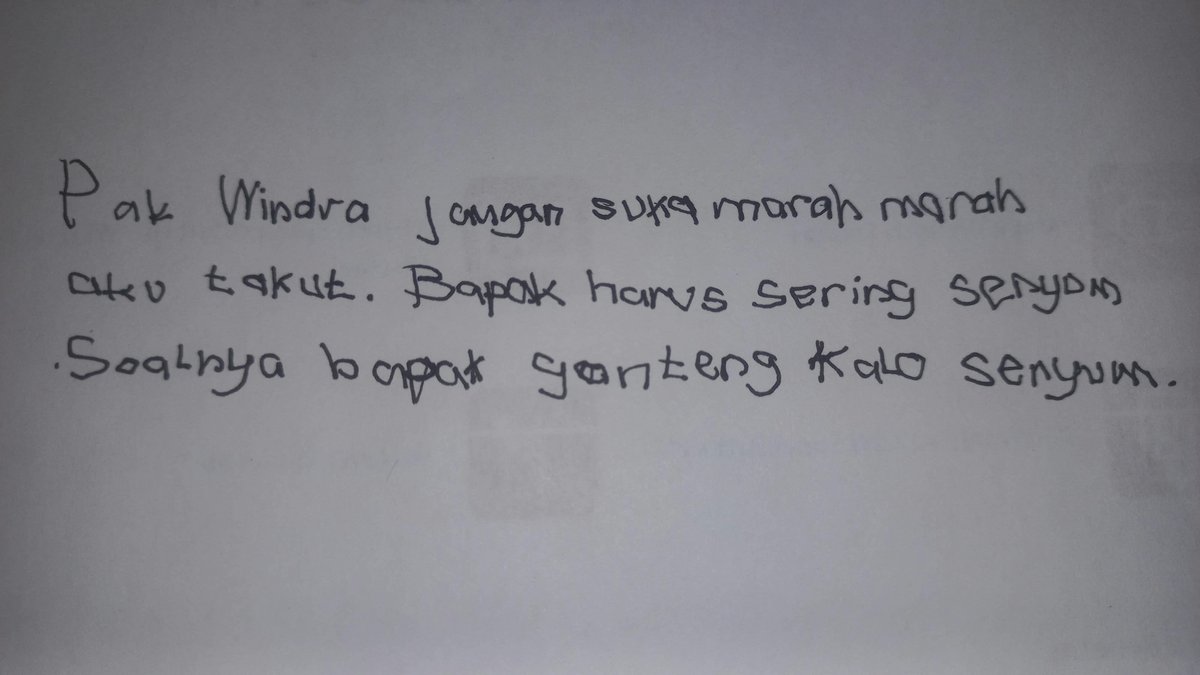 Pak Windra jangan suka marah marah
aku takut. Bapak harus sering senyum
.Soalnya bapak ganteng kalo senyum.